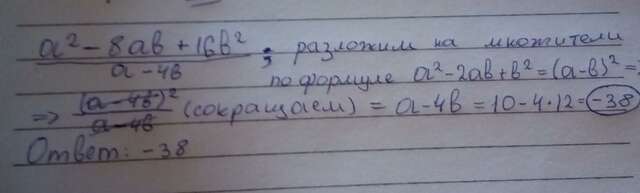 a² - 8ab + 16b² / a - 4b ; разложим на множители
по формуле a² - 2ab + b² = (a - b)² =
=> (a - 4b)² / a - 4b (сокращаем) = a - 4b = 10 - 4 · 12 = -38
Ответ: -38